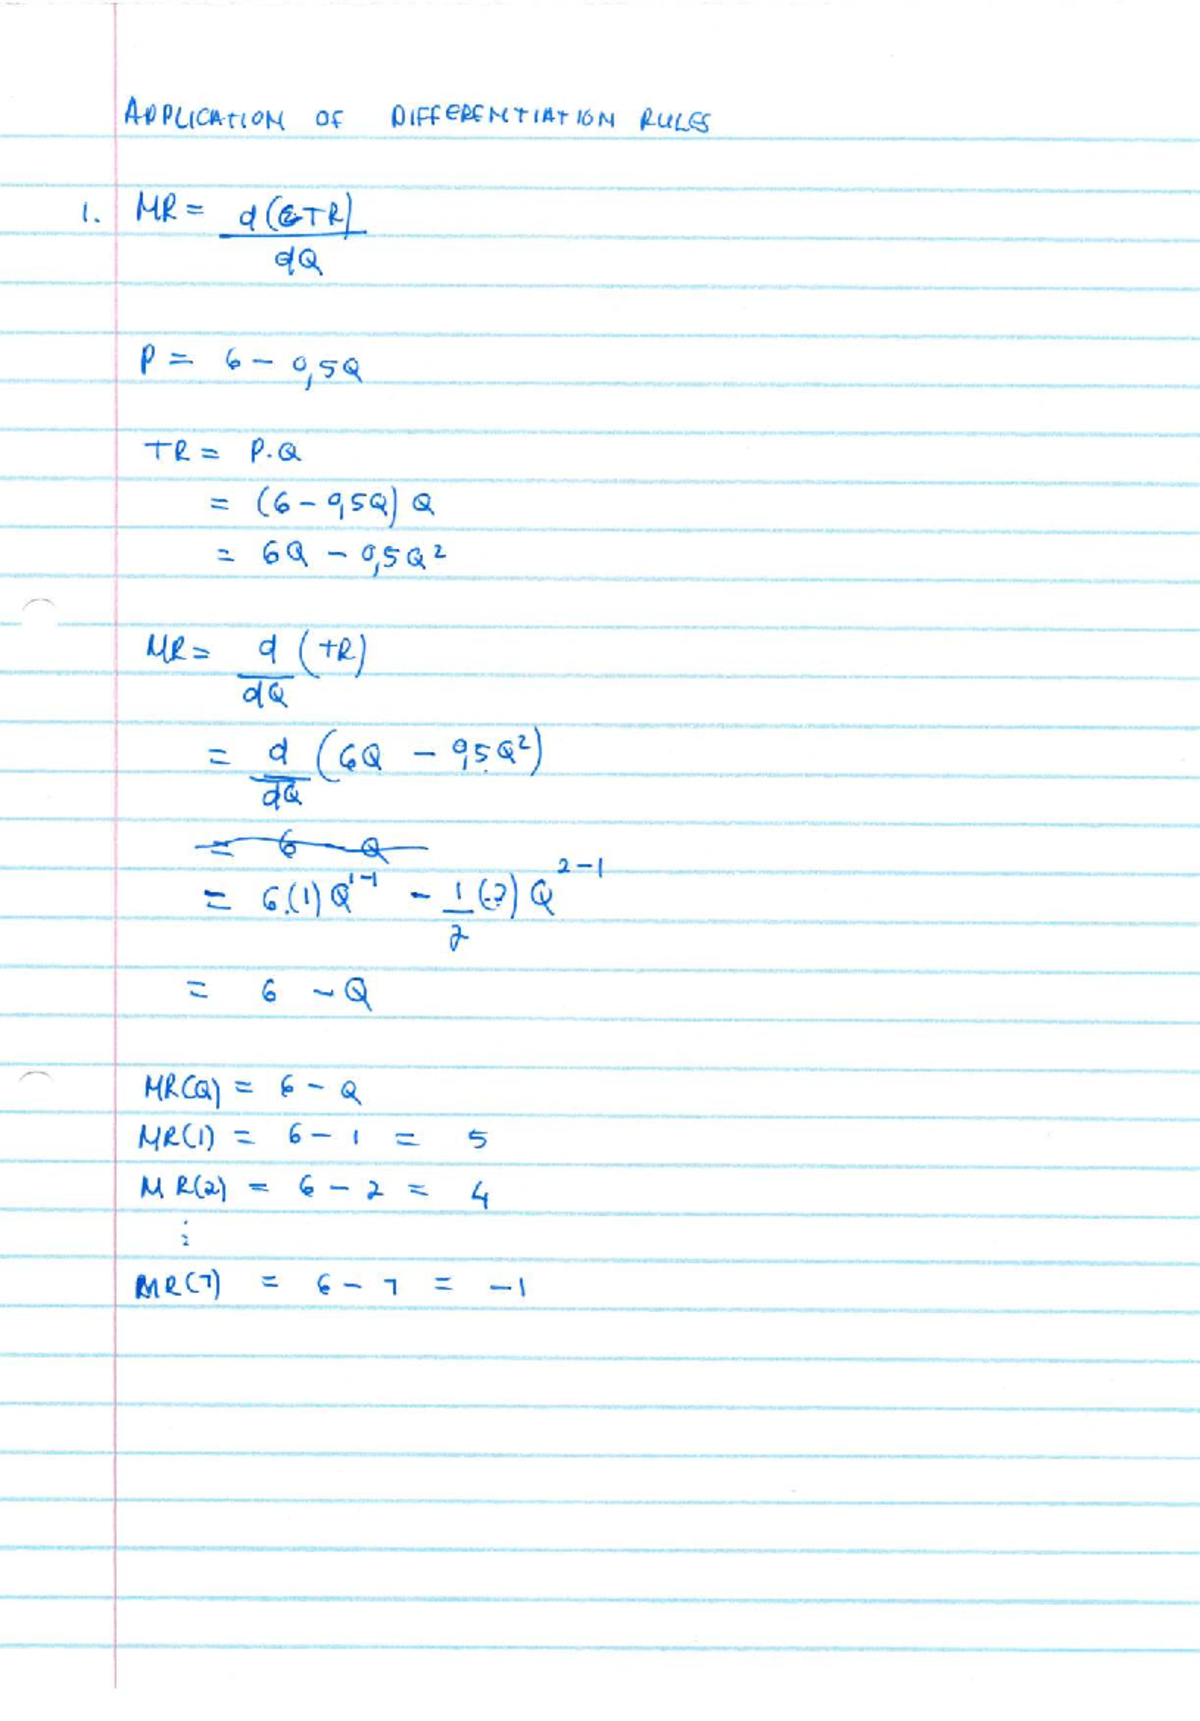 APPLICATION OF DIFFERENTIATION RULES
1. MR = d(TR)
dQ
P = 6 - 0,5Q
TR = P.Q
= (6 - 0,5Q) Q
= 6Q - 0,5Q²
MR = d (TR)
dQ
= d (6Q - 0,5Q²)
dQ
= 6 Q
= 6.(1) Q¹⁻¹ - 1 (2) Q²⁻¹
2
= 6 - Q
MR(Q) = 6 - Q
MR(1) = 6 - 1 = 5
MR(2) = 6 - 2 = 4
:
MR(7) = 6 - 7 = -1